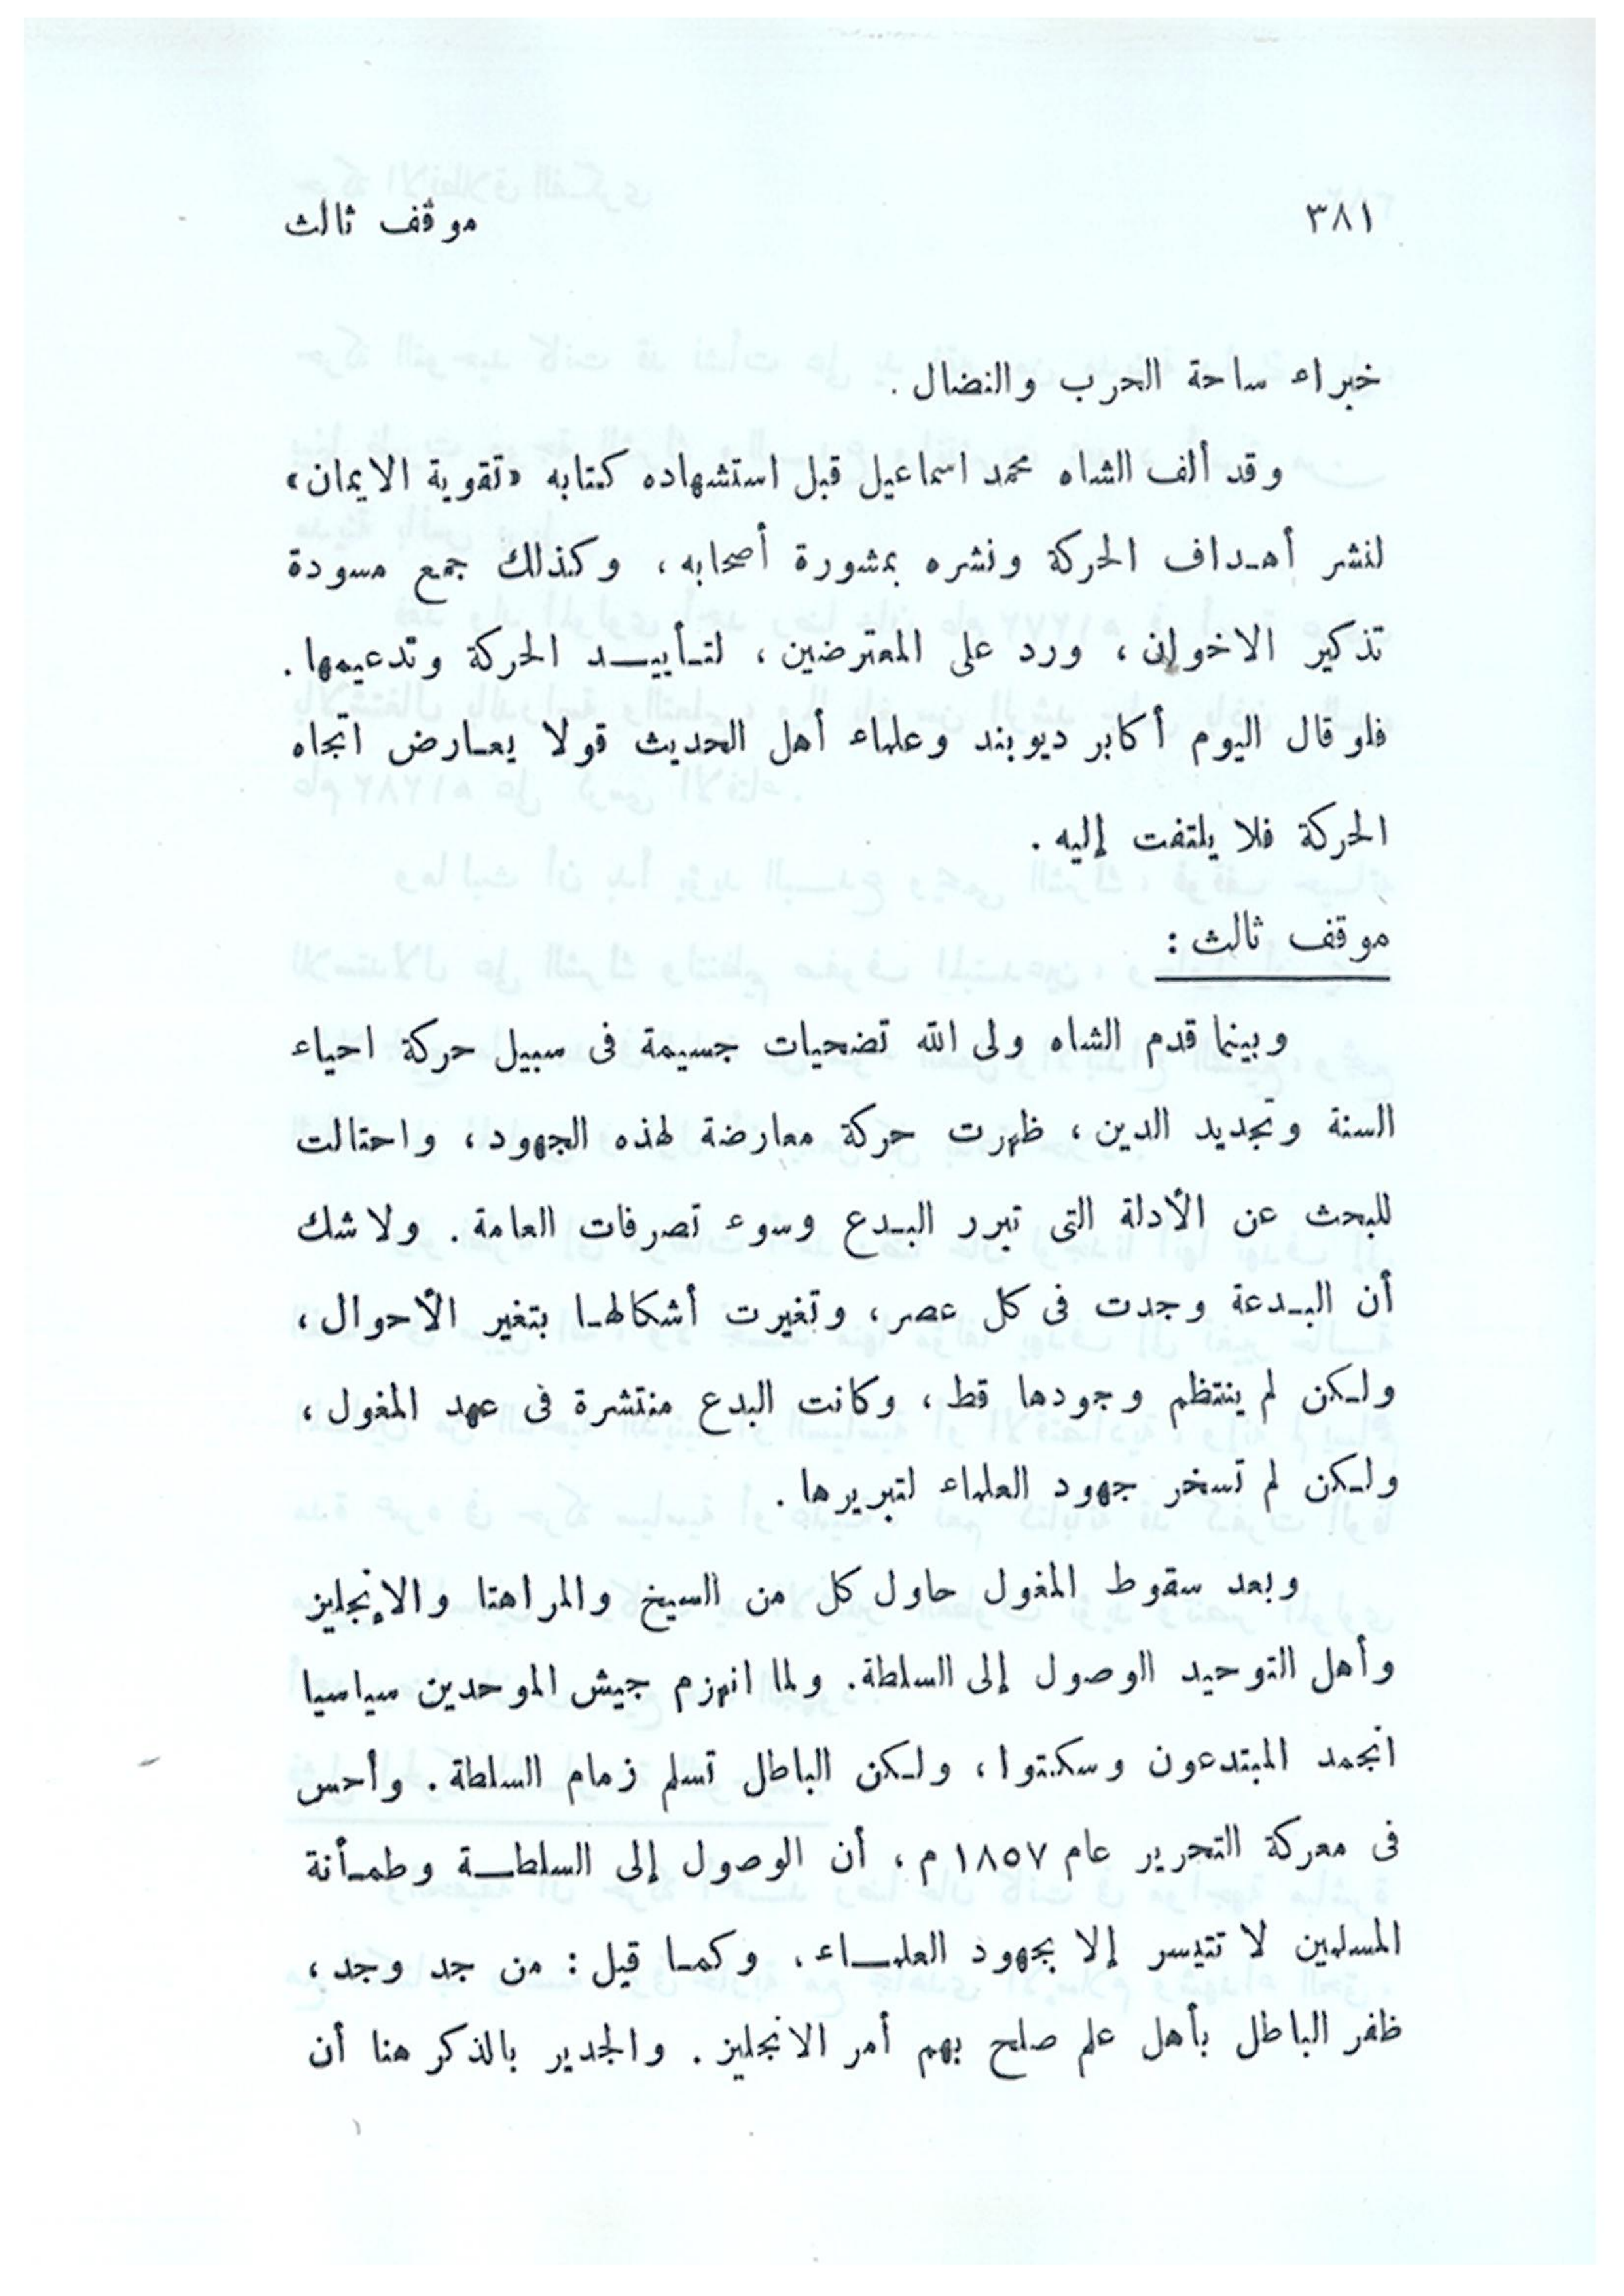 ٣٨١ موقف ثالث
خبراء ساحة الحرب والنضال .
وقد ألف الشاه محمد اسماعيل قبل استشهاده كتابه «تقوية الايمان»
لنشر أهداف الحركة ونشره بمشورة أصحابه ، وكذلك جمع مسودة
تذكير الاخوان ، ورد على المعترضين ، لتأييد الحركة وتدعيمها .
فلو قال اليوم أكابر ديوبند وعلماء أهل الحديث قولا يعارض اتجاه
الحركة فلا يلتفت إليه .
موقف ثالث :
وبينما قدم الشاه ولى الله تضحيات جسيمة فى سبيل حركة احياء
السنة وتجديد الدين ، ظهرت حركة معارضة لهذه الجهود ، واحتالت
للبحث عن الأدلة التى تبرر البدع وسوء تصرفات العامة . ولا شك
أن البدعة وجدت فى كل عصر ، وتغيرت أشكالها بتغير الأحوال ،
ولكن لم ينتظم وجودها قط ، وكانت البدع منتشرة فى عهد المغول ،
ولكن لم تسخر جهود العلماء لتبريرها .
وبعد سقوط المغول حاول كل من السيخ والمراهتا والإنجليز
وأهل التوحيد الوصول إلى السلطة . ولما انهزم جيش الموحدين سياسيا
انجمد المبتدعون وسكتوا ، ولكن الباطل تسلم زمام السلطة . وأحس
فى معركة التحرير عام ١٨٥٧ م ، أن الوصول إلى السلطة وطمأنة
المسلمين لا تتيسر إلا بجهود العلماء . وكما قيل : من جد وجد ،
ظفر الباطل بأهل علم صلح بهم أمر الانجليز . والجدير بالذكر هنا أن